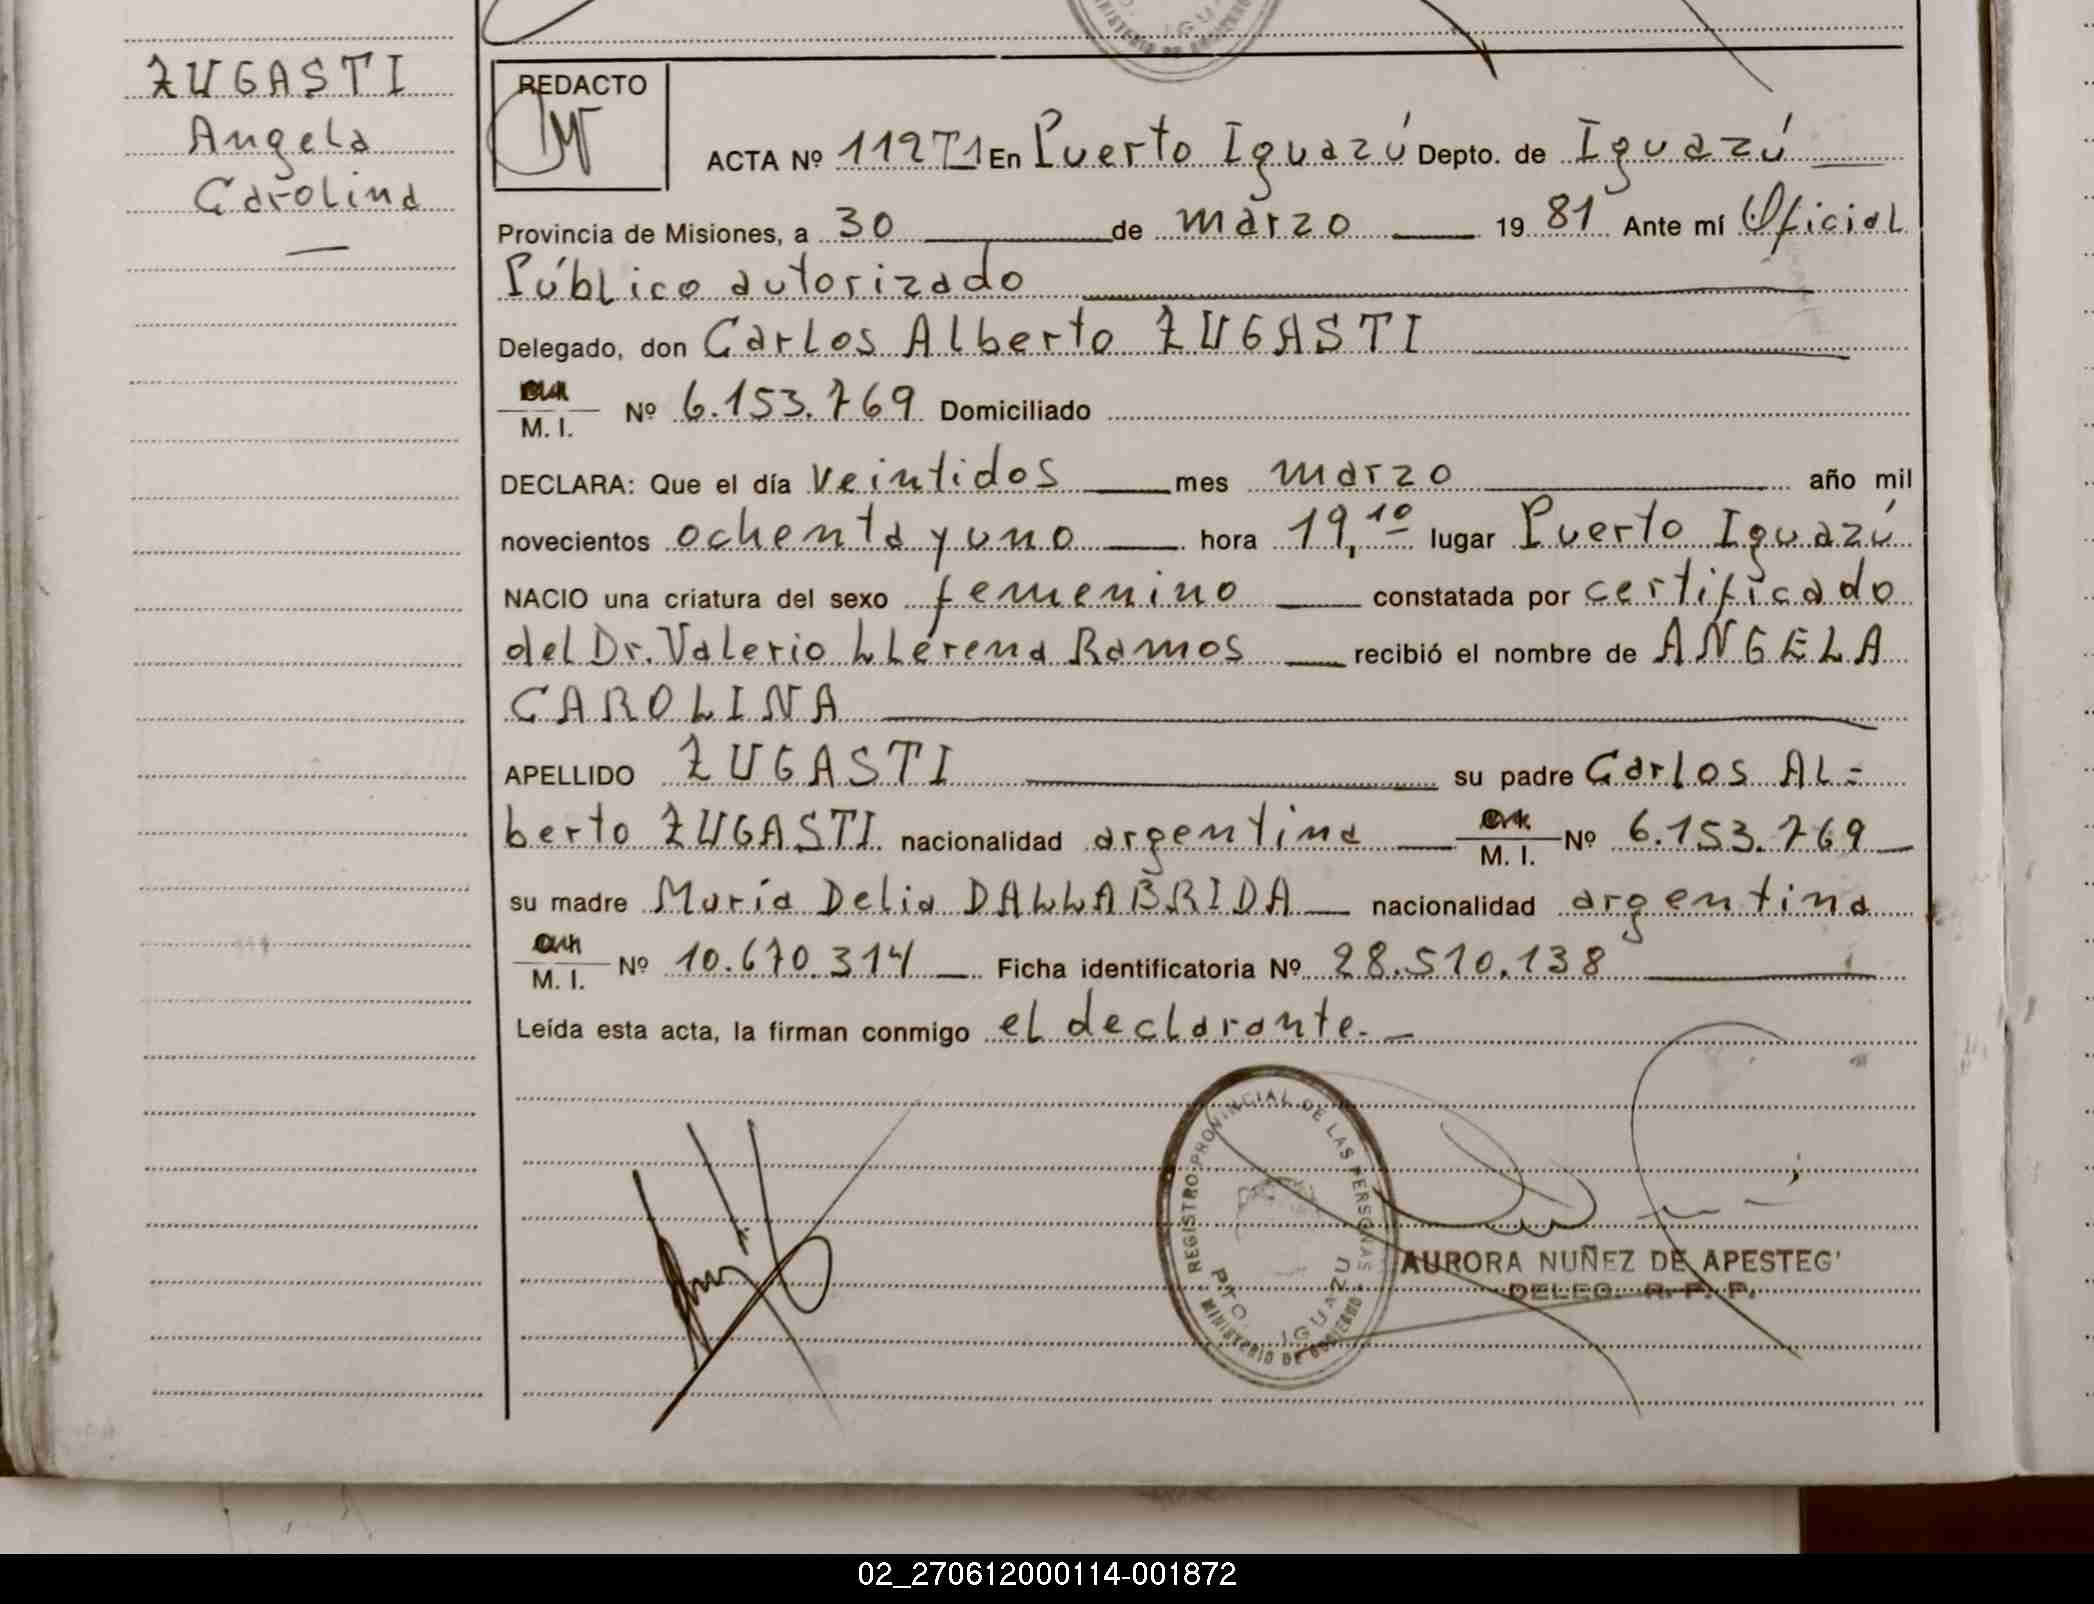 ZUGASTI
Angela
Carolina
REDACTO
ACTA Nº 112T1 En Puerto Iguazú Depto. de Iguazú
Provincia de Misiones, a 30 de marzo 19 81 Ante mí Oficial
Público autorizado
Delegado, don Carlos Alberto ZUGASTI
M. I. Nº 6.153.769 Domiciliado
DECLARA: Que el día veintidos mes marzo año mil
novecientos ochenta y uno hora 19,10 lugar Puerto Iguazú
NACIO una criatura del sexo femenino constatada por certificado
del Dr. Valerio LLerena Ramos recibió el nombre de ANGELA
CAROLINA
APELLIDO ZUGASTI su padre Carlos AL=
berto ZUGASTI nacionalidad argentina M. I. Nº 6.153.769
su madre María Delia DALLABRIDA nacionalidad argentina
M. I. Nº 10.670.314 Ficha identificatoria Nº 28.510.138
Leída esta acta, la firman conmigo el declarante.
REGISTRO PROVINCIAL DE LAS PERSONAS
PTO. IGUAZU
MINISTERIO DE GOBIERNO
AURORA NUÑEZ DE APESTEG'
DELEG. R. P. P.
02_270612000114-001872